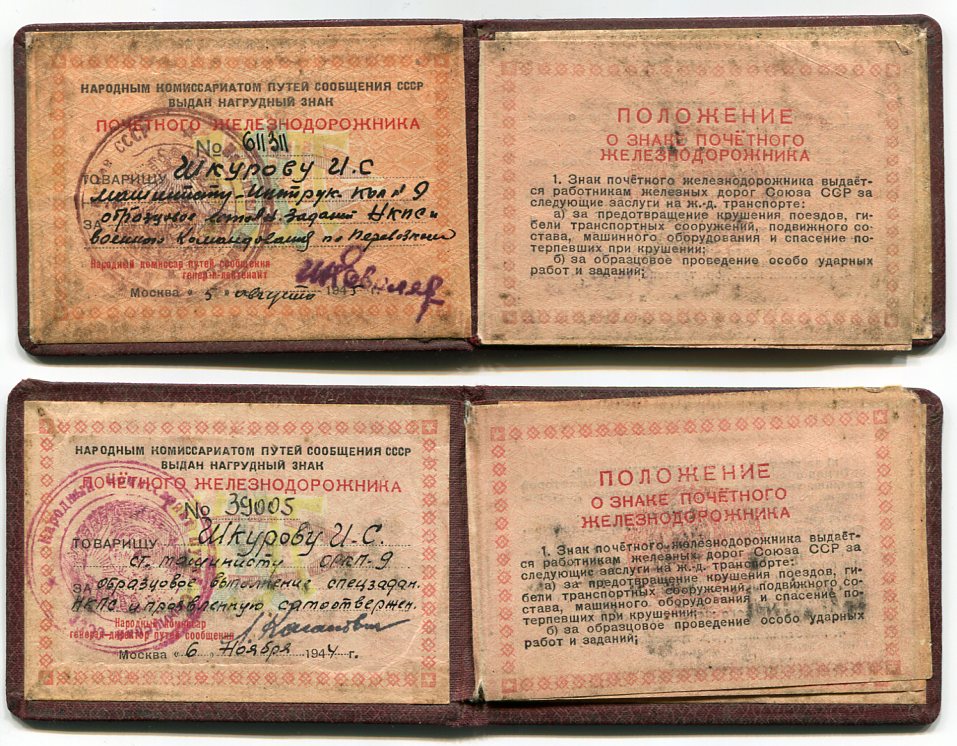 НАРОДНЫМ КОМИССАРИАТОМ ПУТЕЙ СООБЩЕНИЯ СССР
ВЫДАН НАГРУДНЫЙ ЗНАК
ПОЧЁТНОГО ЖЕЛЕЗНОДОРОЖНИКА
№ 611311
ТОВАРИЩУ Шкурову И.С
машинисту
ЗА образцовое заданий НКПС и
Военного Командования по Перевозкам
Народный комиссар путей сообщения
генерал-лейтенант
Москва „5" августа 1945 г.
ПОЛОЖЕНИЕ
О ЗНАКЕ ПОЧЁТНОГО
ЖЕЛЕЗНОДОРОЖНИКА
1. Знак почётного железнодорожника выдаёт-
ся работникам железных дорог Союза ССР за
следующие заслуги на ж.-д. транспорте:
а) за предотвращение крушения поездов, ги-
бели транспортных сооружений, подвижного со-
става, машинного оборудования и спасение по-
терпевших при крушении;
б) за образцовое проведение особо ударных
работ и заданий;
НАРОДНЫМ КОМИССАРИАТОМ ПУТЕЙ СООБЩЕНИЯ СССР
ВЫДАН НАГРУДНЫЙ ЗНАК
ПОЧЁТНОГО ЖЕЛЕЗНОДОРОЖНИКА
№ 39005
ТОВАРИЩУ Шкурову И.С.
ст. машинисту
ЗА образцовое выполнение спецзадан.
НКПС и проявленную самоотвержен.
Народный комиссар
генерал-директор путей сообщения Л. Каганович
Москва „6" Ноября 1944 г.
ПОЛОЖЕНИЕ
О ЗНАКЕ ПОЧЁТНОГО
ЖЕЛЕЗНОДОРОЖНИКА
1. Знак почётного железнодорожника выдаёт-
ся работникам железных дорог Союза ССР за
следующие заслуги на ж.-д. транспорте:
а) за предотвращение крушения поездов, ги-
бели транспортных сооружений, подвижного со-
става, машинного оборудования и спасение по-
терпевших при крушении;
б) за образцовое проведение особо ударных
работ и заданий;